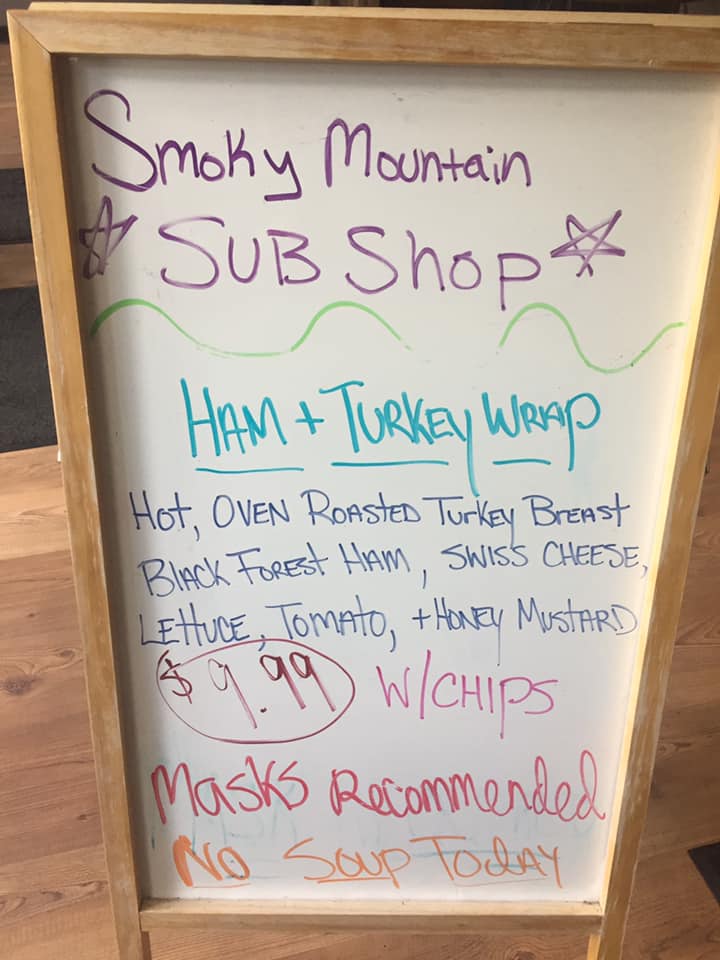 Smoky Mountain
SUB Shop
HAM + TURKEY WRAP
Hot, OVEN ROASTED TURKEY BREAST
BLACK FOREST HAM, SWISS CHEESE,
LETTUCE, TOMATO, + HONEY MUSTARD
$9.99 W/CHIPS
Masks Recommended
NO SOUP TODAY